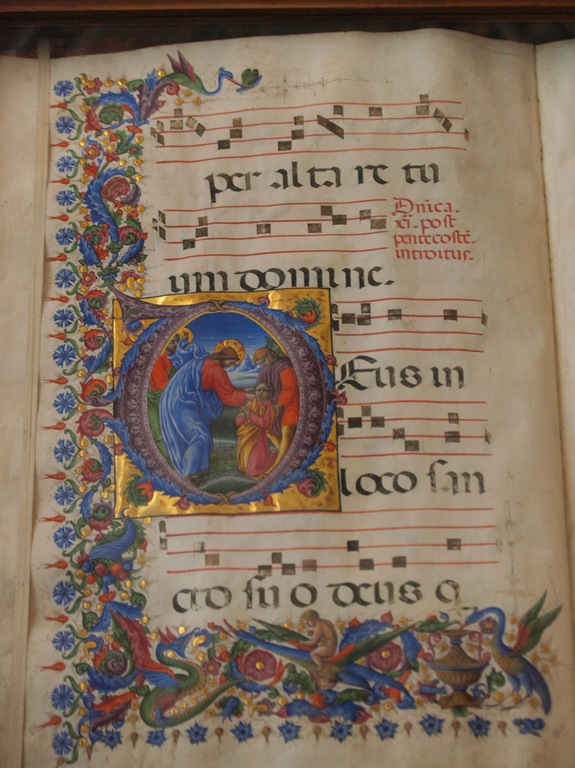 per altare tu
Dnica.
xi. post
pentecosté.
introitus.
um domine.
DEus in
loco san
cto suo deus q